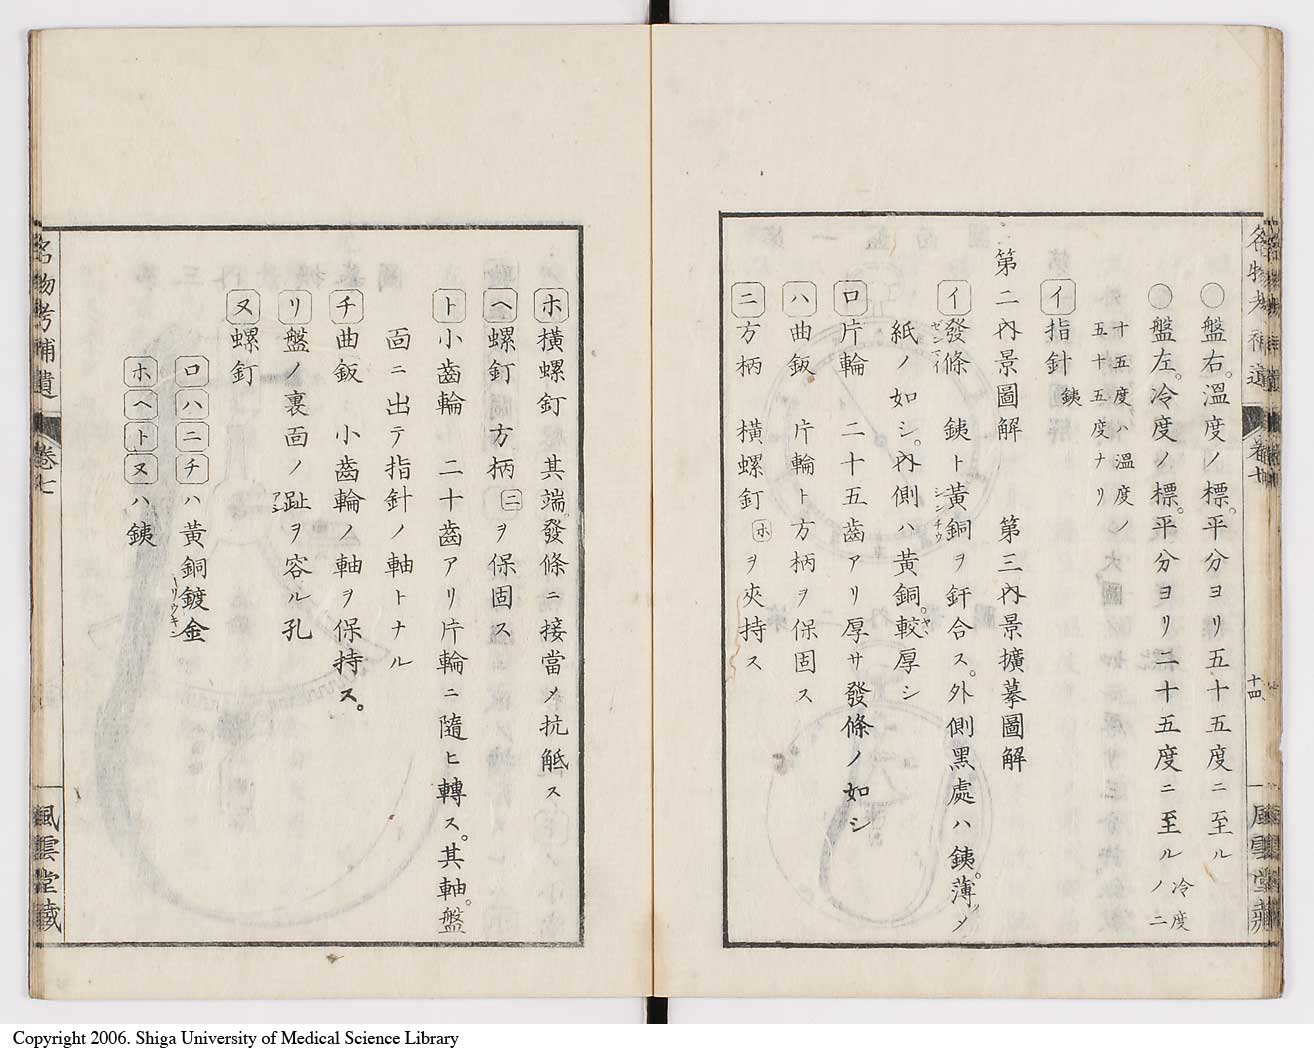 ○盤右。溫度ノ標。平分ヨリ五十五度ニ至ル
○盤左。冷度ノ標。平分ヨリ二十五度ニ至ル 冷度ノ二
十五度ハ溫度ノ
五十五度ナリ
イ指針 銕
第二內景圖解 第三內景擴摹圖解
イ發條 銕ト黃銅ヲ釬合ス。外側黑處ハ銕。薄ノメ
ゼンマイ シンチウ
紙ノ如シ。內側ハ黃銅。較厚シ
ヤヽ
ロ片輪 二十五齒アリ厚サ發條ノ如シ
ハ曲鈑 片輪ト方柄ヲ保固ス
ニ方柄 橫螺釘ホヲ夾持ス
名物考補遺
卷七
十四
風雲堂藏
ホ橫螺釘 其端。發條ニ接當ノ抗觝ス
ヘ螺釘 方柄ニヲ保固ス
ト小齒輪 二十齒アリ片輪ニ隨ヒ轉ス。其軸。盤
面ニ出テ指針ノ軸トナル
チ曲鈑 小齒輪ノ軸ヲ保持ス。
リ盤ノ裏面ノ趾ヲ容ル孔
ヌ螺釘
ロハニチハ黃銅鍍金
ホヘトヌハ銕
名物考補遺
卷七
風雲堂藏
Copyright 2006. Shiga University of Medical Science Library